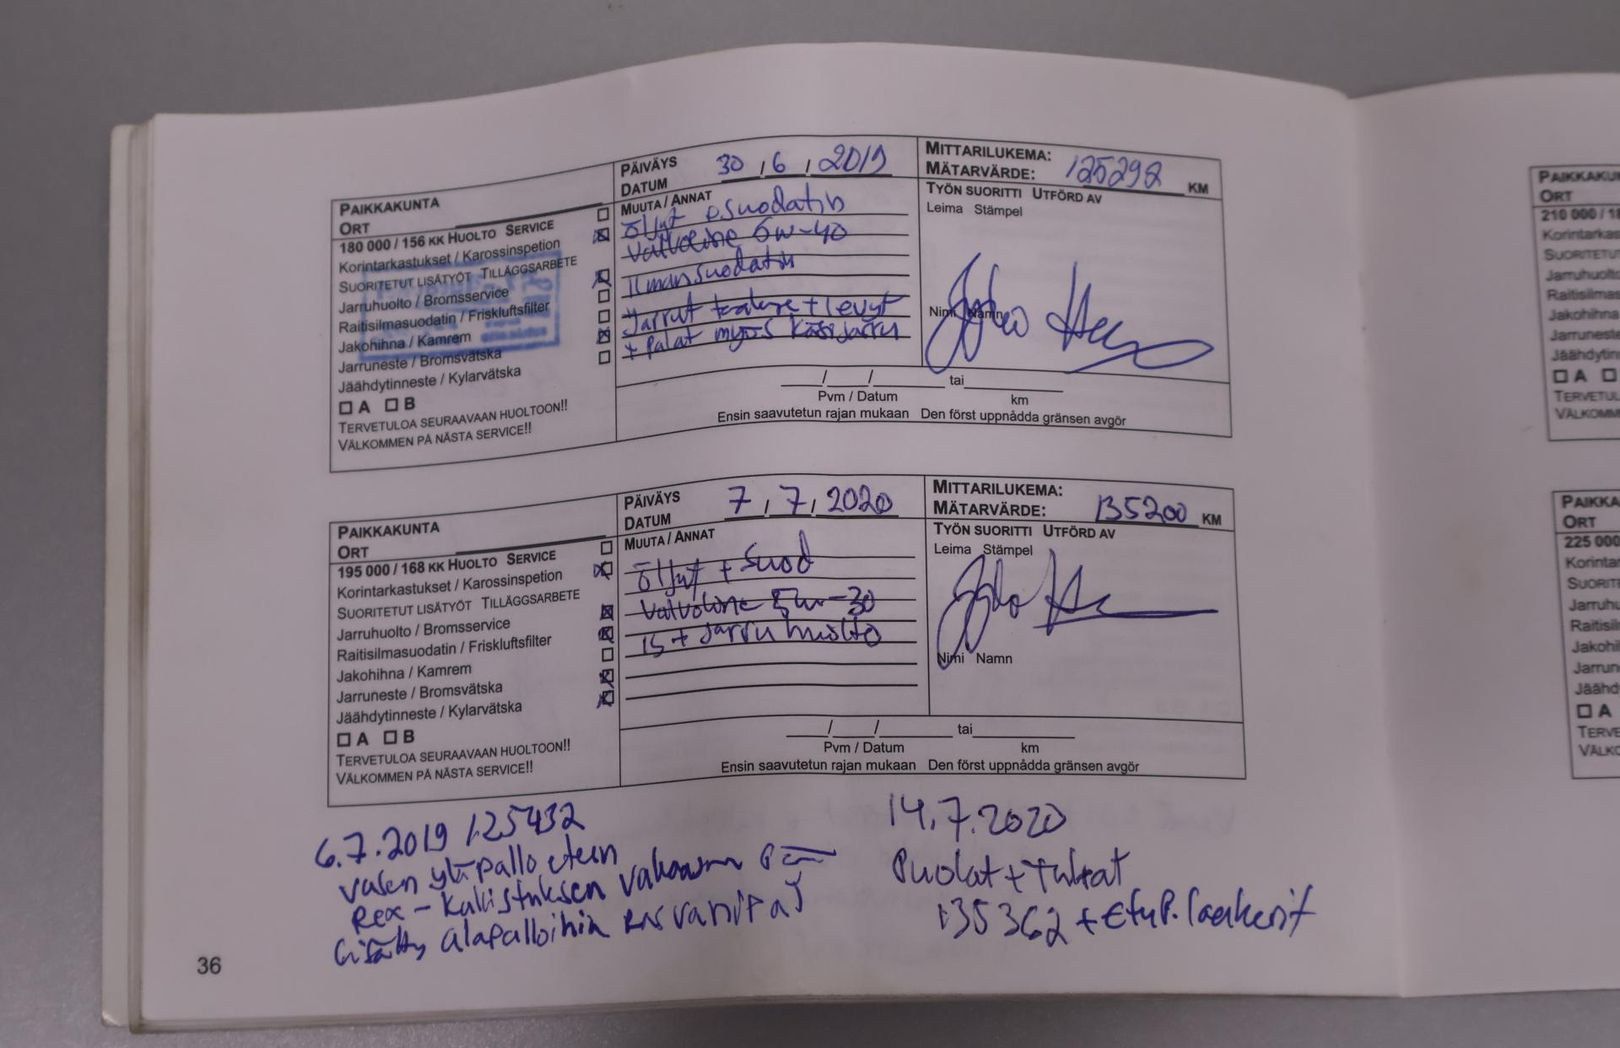 PAIKKAKUNTA
ORT
180 000 / 156 KK HUOLTO SERVICE
Korintarkastukset / Karossinspetion
SUORITETUT LISÄTYÖT TILLÄGGSARBETE
Jarruhuolto / Bromsservice
Raitisilmasuodatin / Friskluftsfilter
Jakohihna / Kamrem
Jarruneste / Bromsvätska
Jäähdytinneste / Kylarvätska
A B
TERVETULOA SEURAAVAAN HUOLTOON!!
VÄLKOMMEN PÅ NÄSTA SERVICE!!
PÄIVÄYS
DATUM 30 / 6 / 2019
MUUTA / ANNAT
öljyt suodatin
Valvoline 5w-40
Ilmansuodatin
Jarrut + levyt
+ Palat myös käsijarru
MITTARILUKEMA:
MÄTARVÄRDE: 125292 KM
TYÖN SUORITTI UTFÖRD AV
Leima Stämpel
Nimi Namn
/ / tai
Pvm / Datum km
Ensin saavutetun rajan mukaan Den först uppnådda gränsen avgör
PAIKKAKUNTA
ORT
195 000 / 168 KK HUOLTO SERVICE
Korintarkastukset / Karossinspetion
SUORITETUT LISÄTYÖT TILLÄGGSARBETE
Jarruhuolto / Bromsservice
Raitisilmasuodatin / Friskluftsfilter
Jakohihna / Kamrem
Jarruneste / Bromsvätska
Jäähdytinneste / Kylarvätska
A B
TERVETULOA SEURAAVAAN HUOLTOON!!
VÄLKOMMEN PÅ NÄSTA SERVICE!!
PÄIVÄYS
DATUM 7 / 7 / 2020
MUUTA / ANNAT
öljyt + suod
Valvoline 5w-30
is + Jarruhuolto
MITTARILUKEMA:
MÄTARVÄRDE: 135200 KM
TYÖN SUORITTI UTFÖRD AV
Leima Stämpel
Nimi Namn
/ / tai
Pvm / Datum km
Ensin saavutetun rajan mukaan Den först uppnådda gränsen avgör
6.7.2019 125432
vasen yläpallo eteen
alapalloihin rasvanipat
14.7.2020
Puolat + Tulpat
135362 + Etup. laakerit
36
PAIKKAKU
ORT
210 000 / 1
Korintarkas
Jarruhuolto
Raitisilmas
Jakohihna
Jarruneste
Jäähdytin
A
TERVETUL
VÄLKOMM
PAIKKA
ORT
225 000
Korinta
SUORIT
Jarruhu
Raitisil
Jakohi
Jarrun
Jäähd
A
TERVE
VÄLKO